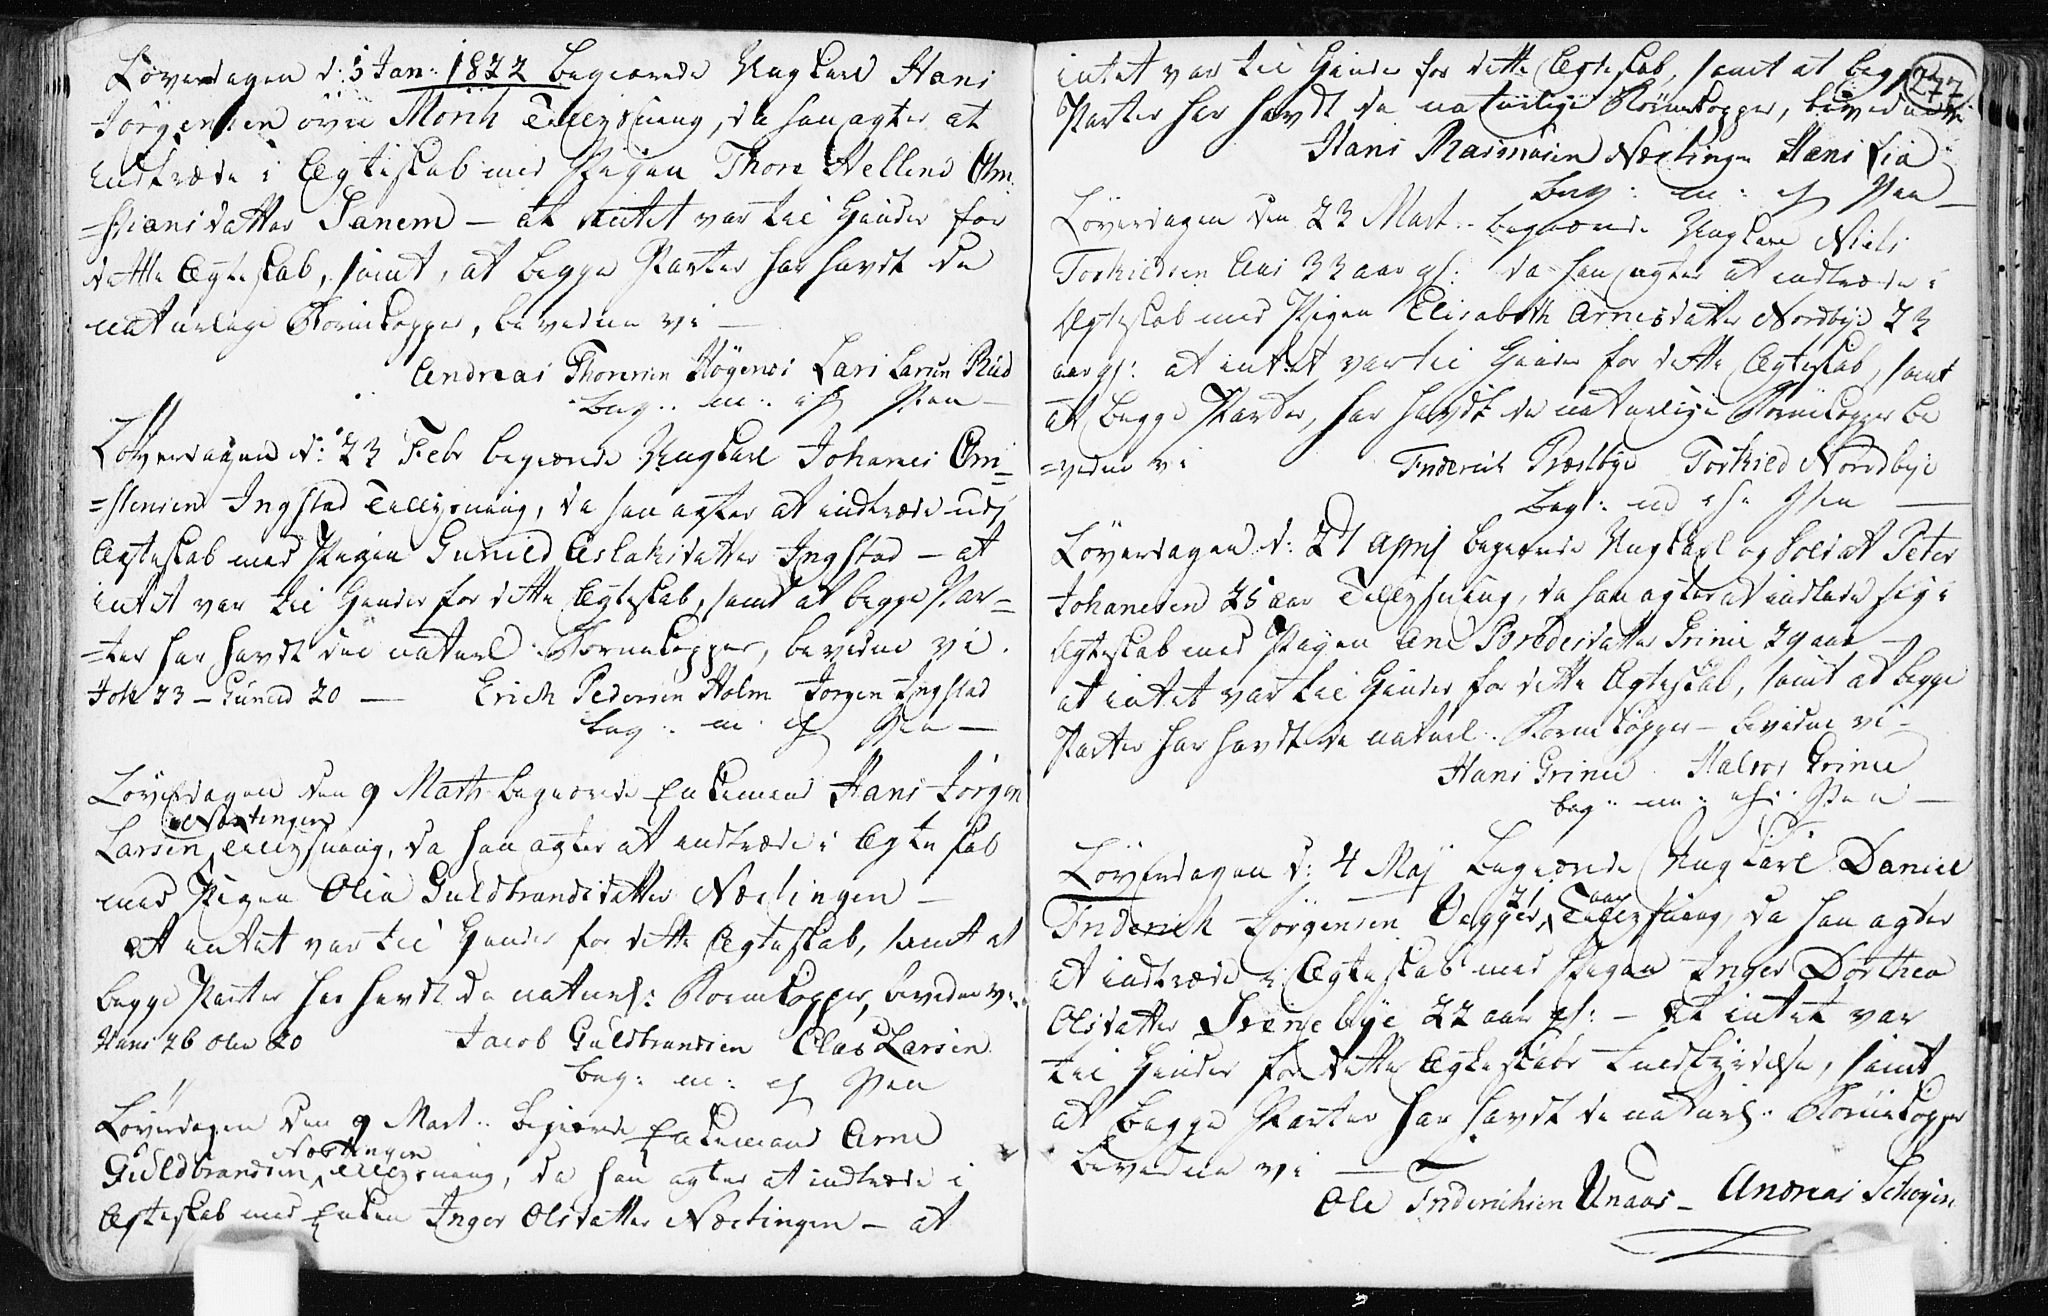 Løverdagen d: 5 Jan: 1822 begiærede Ungkarl Hans
Jörgensen övre Mörch Tillysning, da han agter at
indtræde i Ægteskab med Pigen Thore Hellene Chri
=stiansdatter Sanem – at intet var til Hinder for
dette Ægteskab, samt, at begge Parter har havdt de
naturlige Børnekopper, bevidne vi –
Andreas Thoresen Högenes Lars Larsen Rud
Løverdagen d: 23 Febr begiærede Ungkarl Johanes Cri=
=stensen Ingstad Tillysning, da han agter at indtræde udj
Ægteskab med Pigen Gunild Aslaksdatter Ingstad – at
intet var til Hinder for dette Ægteskab, samt at begge Par=
=ter har havdt de naturl: Børnekopper, bevidne vi.
Joh 23 – Gunild 20 — Erich Pedersen Holm Jörgen Ingstad
Løverdagen den 9 Marts begiærede Enkemand Hans Jörgen
Nærtingen
Larsen, Tillysning, da han agter at indtræde i Ægteskab
med Pigen Olia Guldbrandsdatter Nærtingen –
at intet var til Hinder for dette Ægteskab, samt at
begge Parter har havdt de naturl: Børnekopper, bevidne vi
Hans 26 Olia 20 Jacob Guldbrandsen Claes Larsen
Løverdagen den 9 Mart: begiærede Enkemand Arne
Nærtingen
Guldbrandsen, Tillysning, da han agter at indtræde i
Ægteskab med Enken Inger Olsdatter Nærtingen – at
277
intet var til Hinder for dette Ægteskab, samt at begge
Parter har havdt de naturlige Børnekopper, bevidne vi
Hans Rasmusen Nærtingen Hans Lia
Løverdagen den 23 Mart: begiærede Ungkarl Niels
Torkildsen Aas 33 aar gl: da han agter at indtræde i
Ægteskab med Pigen Elisabeth Arnesdatter Nordbye 23
aar gl: at intet var til Hinder for dette Ægteskab, samt
at begge Parter, har havdt de naturlige Børnekopper be
=vidne vi Friderich Præstbye Torkild Nordbye
Løverdagen d: 27 April begiærede Ungkarl og Soldat Peter
Johanesen 25 aar Tillysning, da han agter at indlade sig i
Ægteskab med Pigen Ane Bredesdatter Grinie 29 aar –
at intet var til Hinder for dette Ægteskab, samt at begge
Parter har havdt de naturl: Børnekopper – bevidne vi –
Hans Grinie Halvor Grinie
Løverdagen d: 4 Maj begiærede Ungkarl Daniel
21 aar
Friderich Jörgensen Vegger, Tillysning, da han agter
at indtræde i Ægteskab med Pigen Inger Dorthea
Olsdatter Svensebye 22 aar gl: – at intet var
til Hinder for dette Ægteskabs Fuldbyrdelse, samt
at begge Parter har havdt de naturl: Børnekopper
bevidne vi —
Ole Friderichsen Unaas – Andreas Schøyen